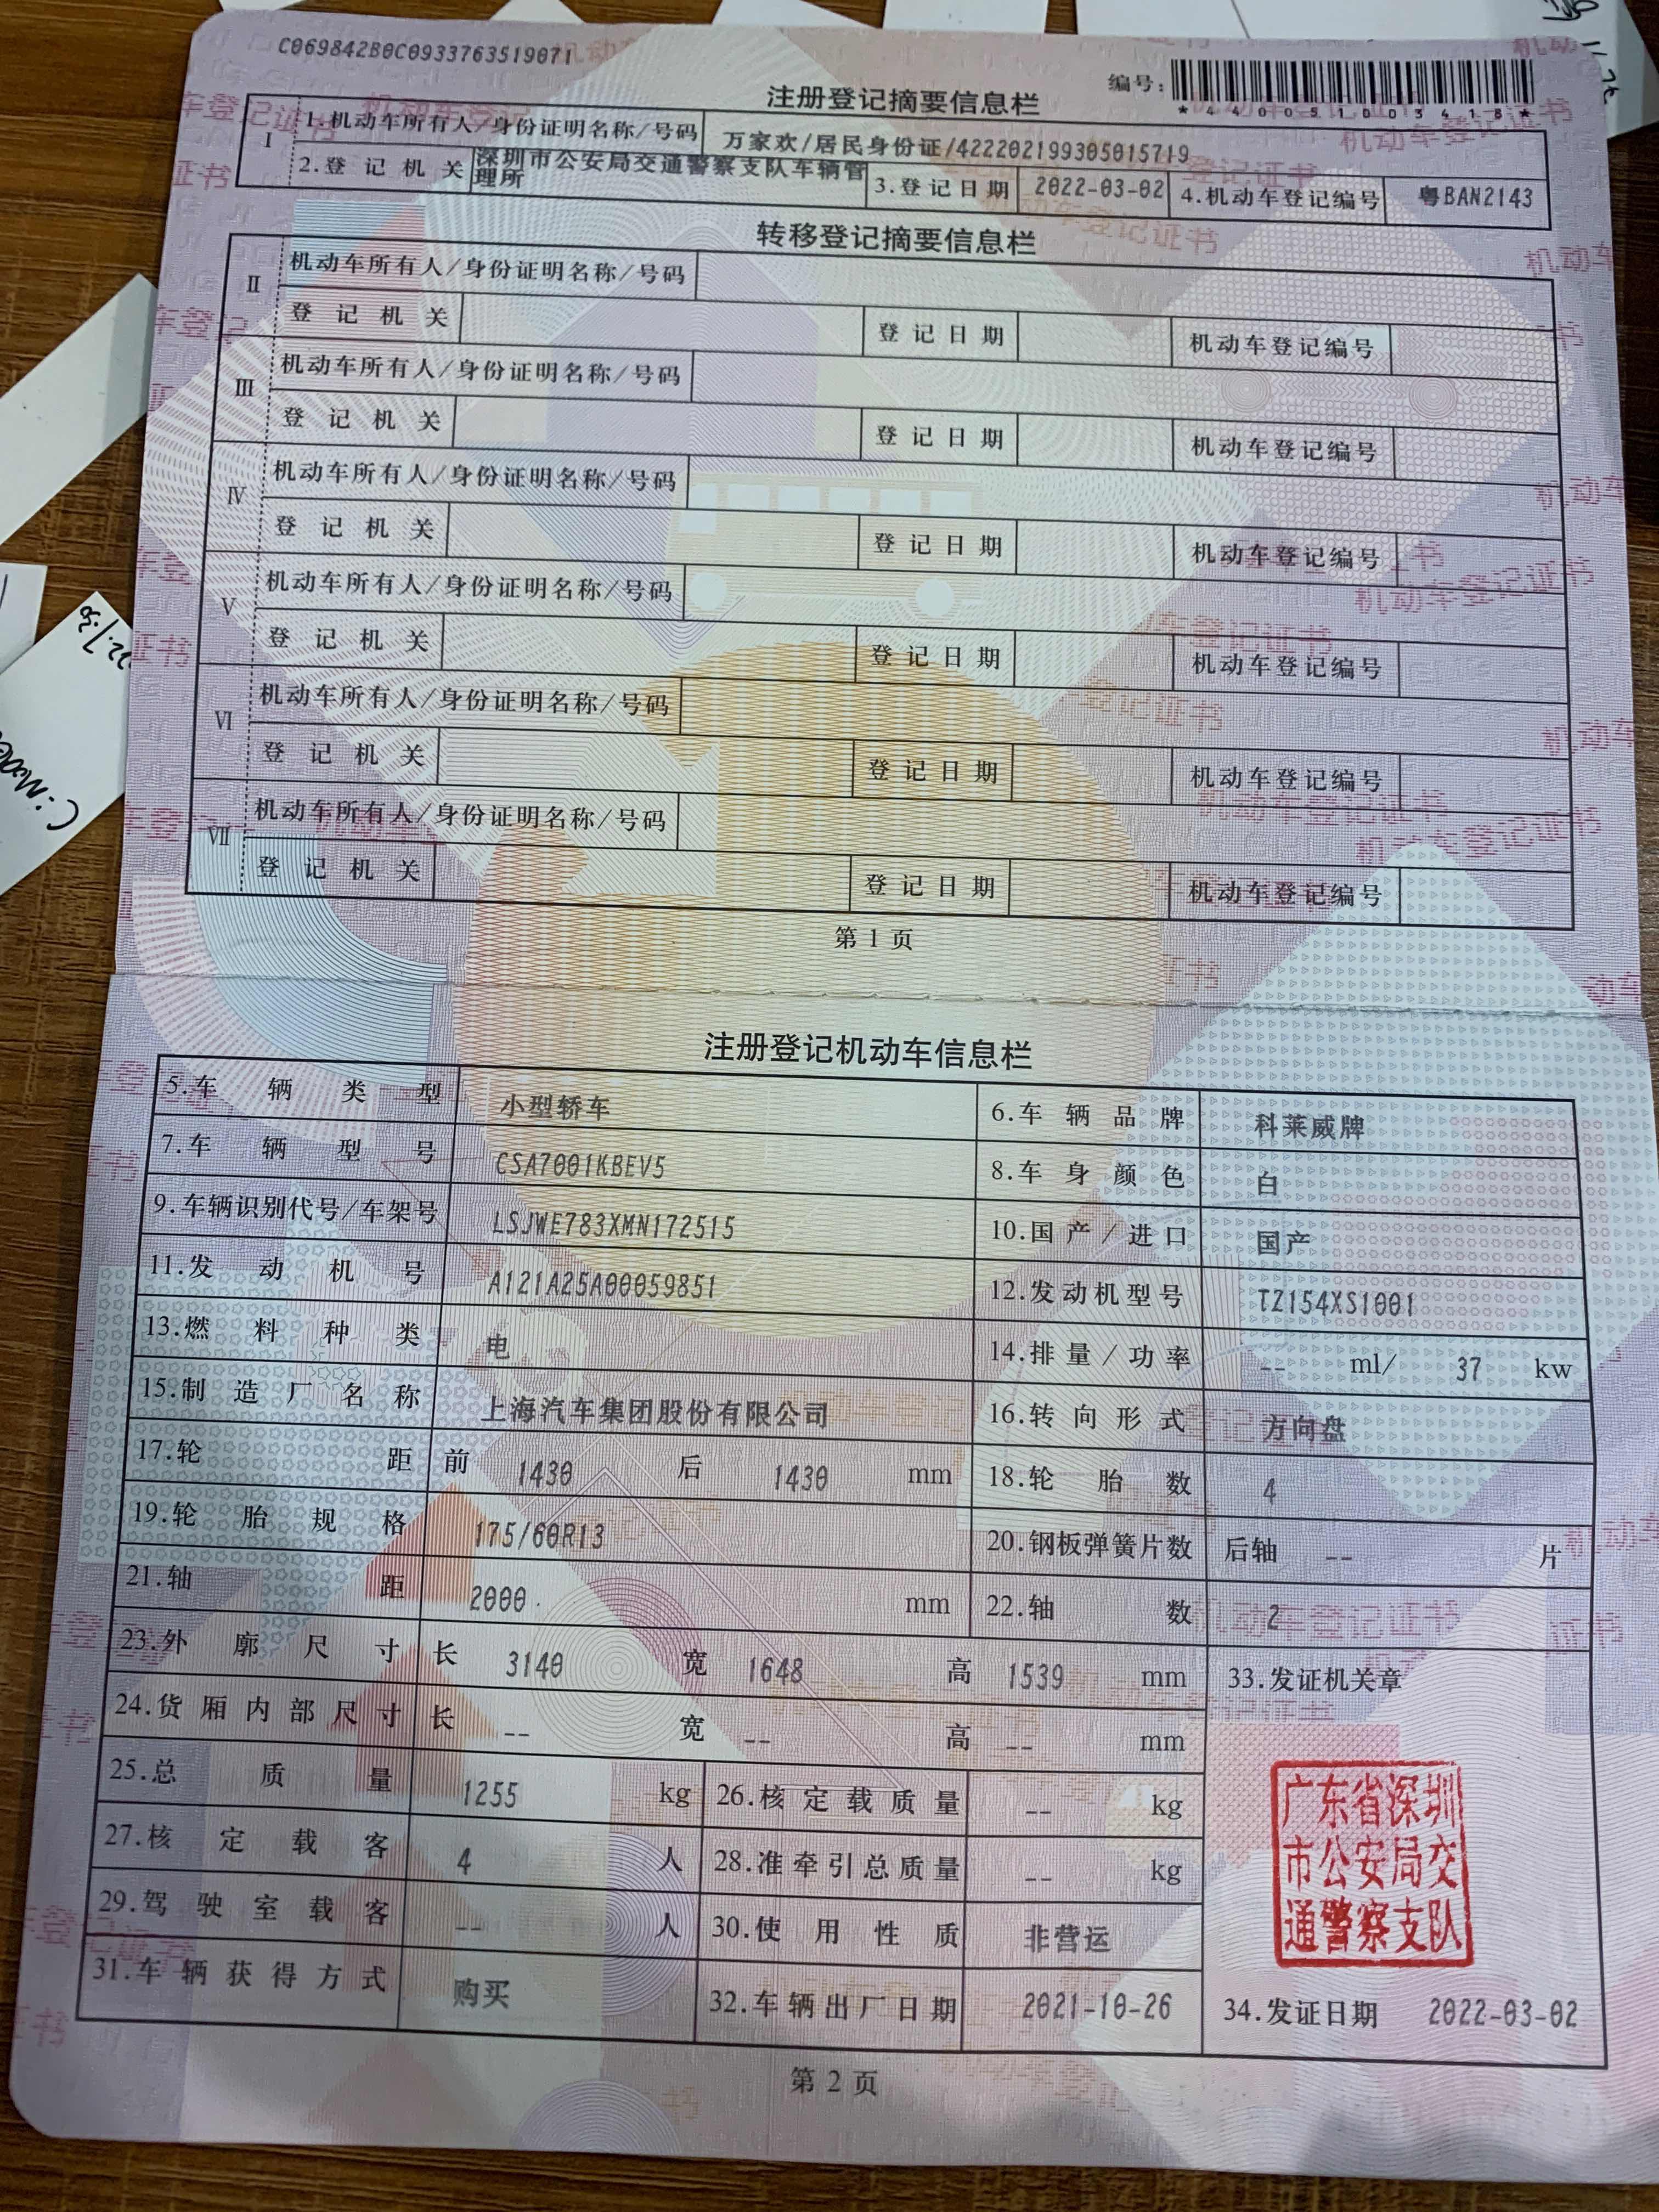 C069842B0C0933763519071
编号:
*440051003418*
注册登记摘要信息栏
I 1.机动车所有人/身份证明名称/号码 万家欢/居民身份证/422202199305015719
2.登记机关 深圳市公安局交通警察支队车辆管理所 3.登记日期 2022-03-02 4.机动车登记编号 粤BAN2143
转移登记摘要信息栏
II 机动车所有人/身份证明名称/号码
登记机关 登记日期 机动车登记编号
III 机动车所有人/身份证明名称/号码
登记机关 登记日期 机动车登记编号
IV 机动车所有人/身份证明名称/号码
登记机关 登记日期 机动车登记编号
V 机动车所有人/身份证明名称/号码
登记机关 登记日期 机动车登记编号
VI 机动车所有人/身份证明名称/号码
登记机关 登记日期 机动车登记编号
VII 机动车所有人/身份证明名称/号码
登记机关 登记日期 机动车登记编号
第 1 页
注册登记机动车信息栏
5.车辆类型 小型轿车 6.车辆品牌 科莱威牌
7.车辆型号 CSA7001KBEV5 8.车身颜色 白
9.车辆识别代号/车架号 LSJWE783XMN172515 10.国产/进口 国产
11.发动机号 A121A25A00059851 12.发动机型号 TZ154XS1001
13.燃料种类 电 14.排量/功率 -- ml/ 37 kw
15.制造厂名称 上海汽车集团股份有限公司 16.转向形式 方向盘
17.轮距 前 1430 后 1430 mm 18.轮胎数 4
19.轮胎规格 175/60R13 20.钢板弹簧片数 后轴 -- 片
21.轴距 2000 mm 22.轴数 2
23.外廓尺寸 长 3140 宽 1648 高 1539 mm 33.发证机关章
24.货厢内部尺寸 长 -- 宽 -- 高 -- mm
25.总质量 1255 kg 26.核定载质量 -- kg
27.核定载客 4 人 28.准牵引总质量 -- kg
29.驾驶室载客 -- 人 30.使用性质 非营运
广东省深圳
市公安局交
通警察支队
31.车辆获得方式 购买 32.车辆出厂日期 2021-10-26 34.发证日期 2022-03-02
第 2 页